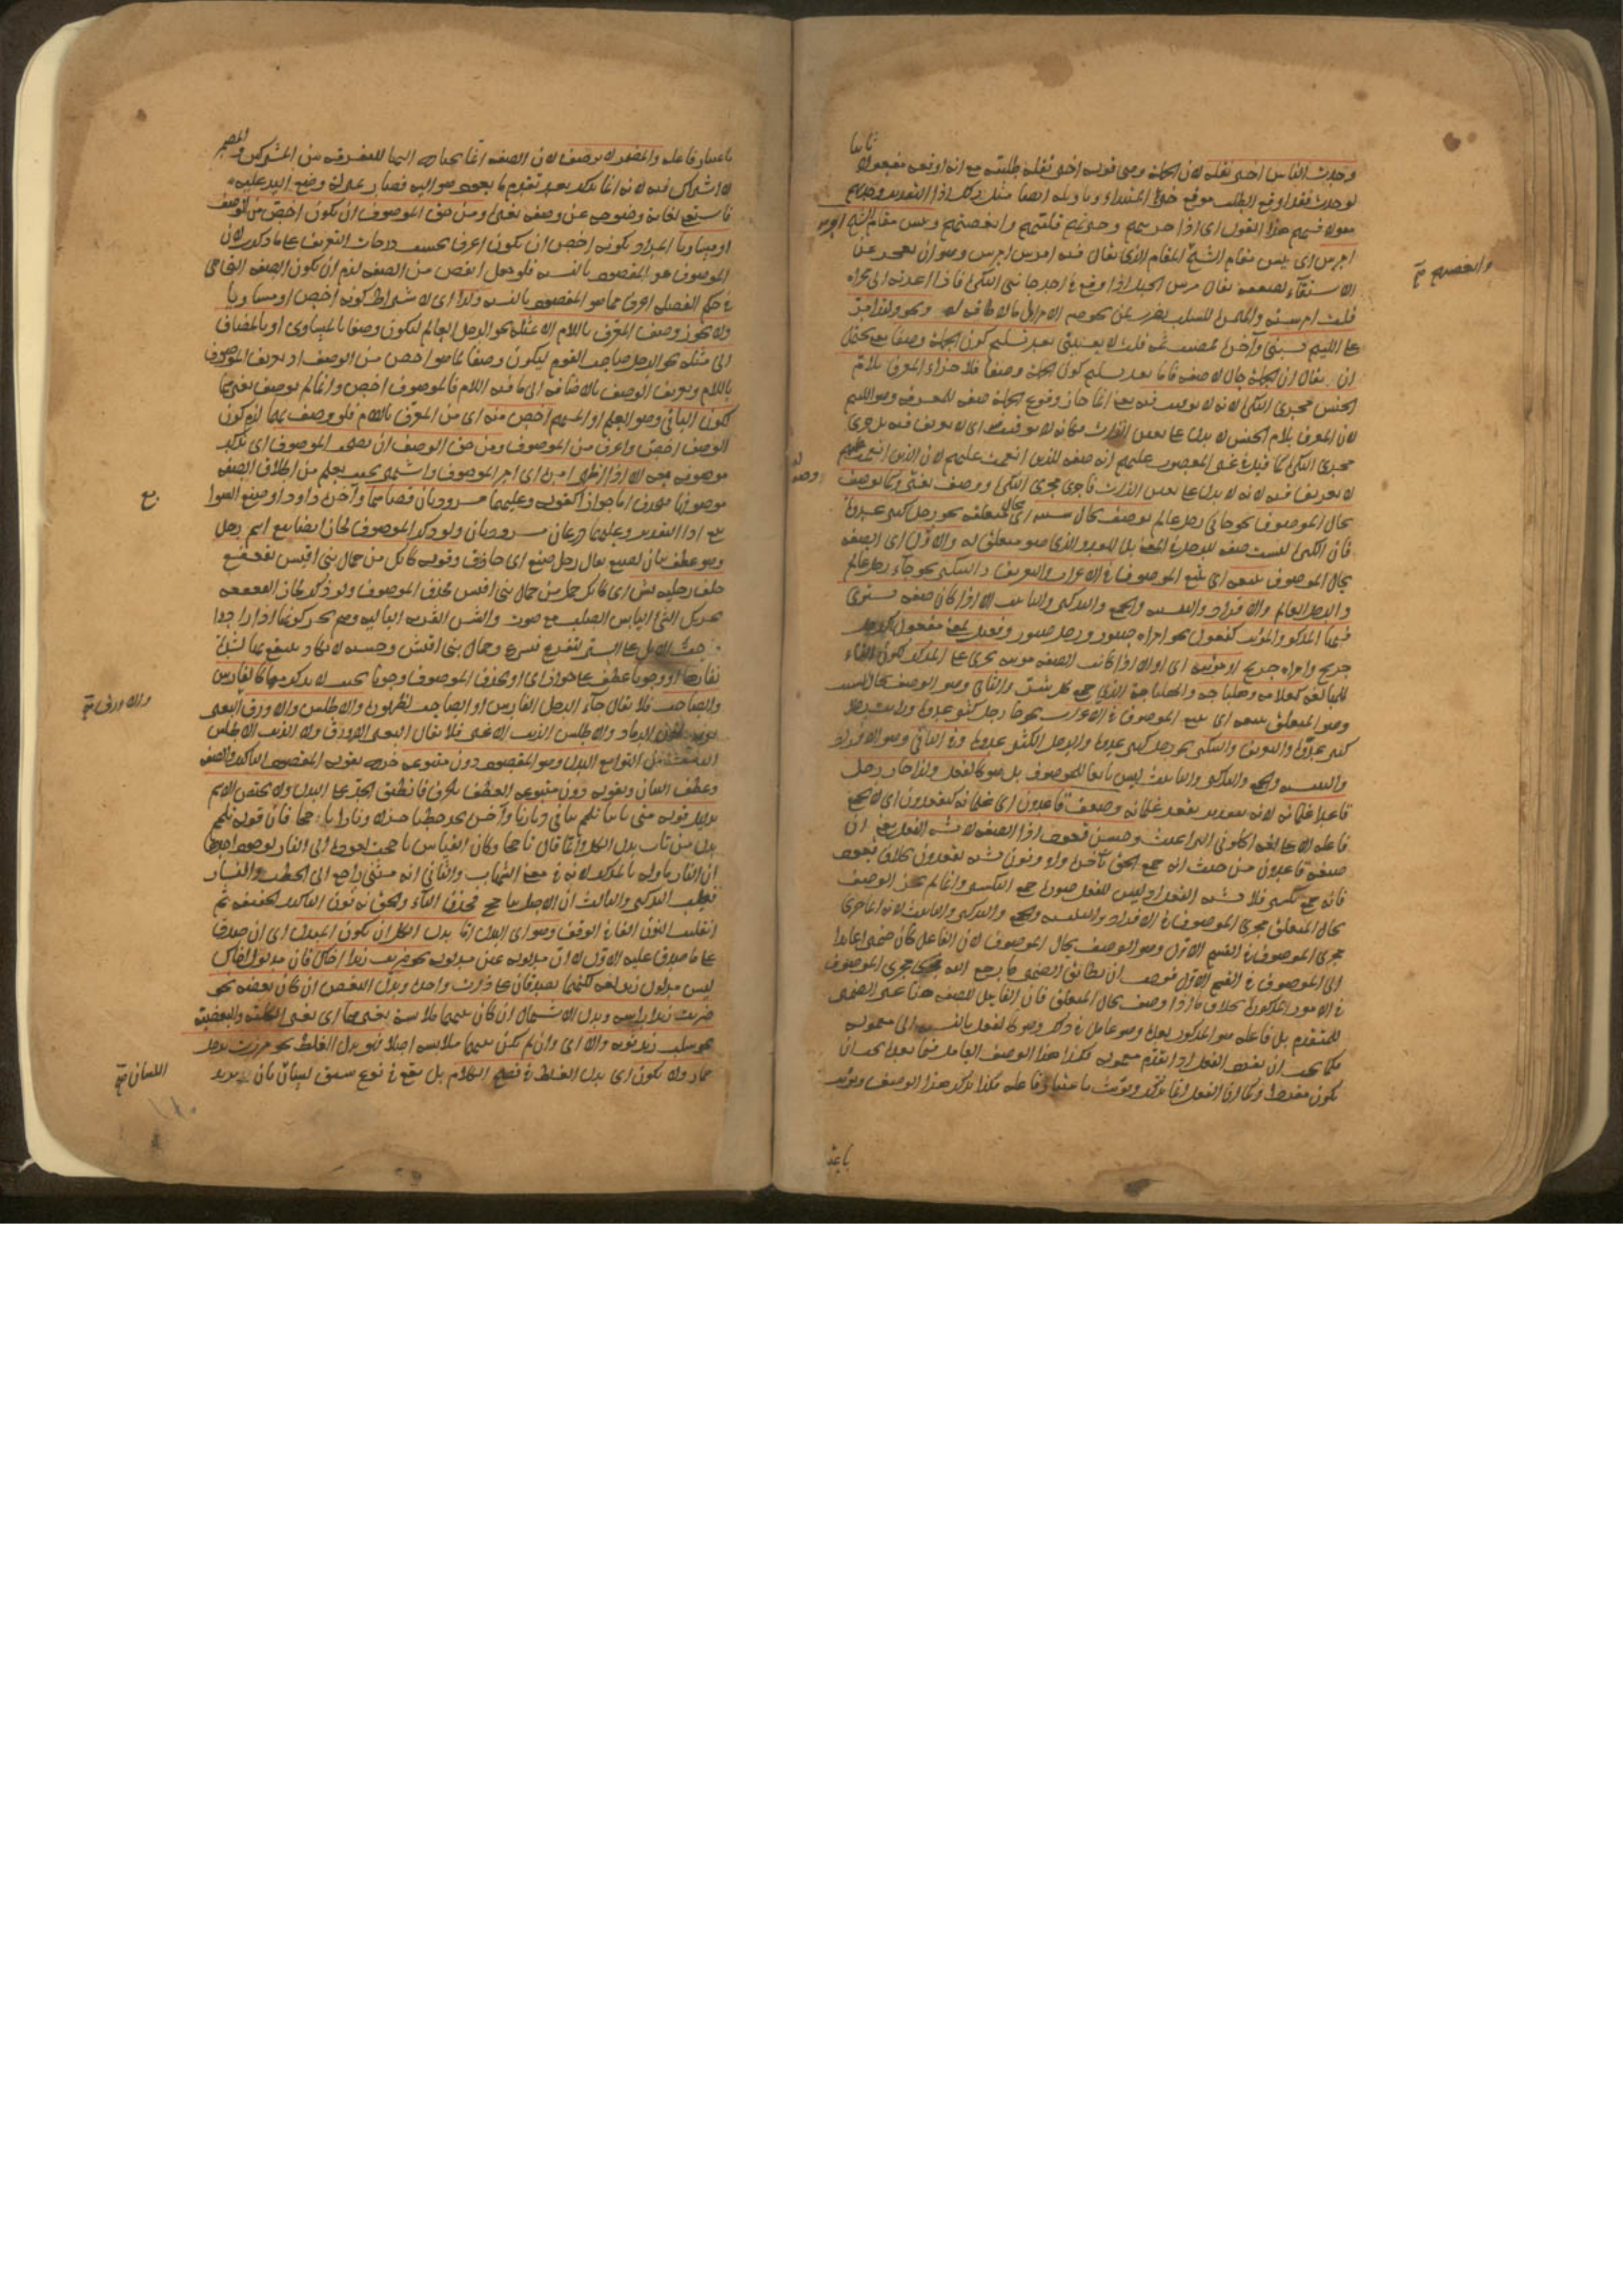 وجدت الناس اخبر تقله لان الجملة وهي قوله اخبر تقله طلبية مع انه اوقعه مفعولا
ثانيا
لوجدت فقد اوقع الطلب موقع خبر المبتداء وتاويله ايضا مثل ذلك اذا التقدير وجدتهم
مقولا فيهم هذا القول اى اذا
والبغضتهم وبئس مقام الشيخ امرس
امرس اى بئس مقام الشيخ المقام الذى يقال فيه امرس امرس وهو ان يعجز عن
الاستقآء لضعفه يقال مرس الحبل اذا وقع فى احد جانبى البكرة فاذا اعدته الى مجراه
قلت امرسته
على اللئيم يسبنى وآخره فمضيت ثمه قلت لا يعنينى بعد تسليم كون الجملة وصفا يعنى يحتمل
ان يقال ان الجملة حال لا صفة فاما بعد تسليم كون الجملة وصفا فلاجراء المعرف بلام
الجنس مجرى النكرة لانه لا توقيت فيه يعنى انما جاز وقوع الجملة صفة للمعرفة وهو اللئيم
لان المعرف بلام الجنس لا يدل على تعيين الذات فكانه لا توقيت اى لا تعريف فيه بل جرى
مجرى النكرة كما قيل فى غير المغضوب عليهم انه صفة للذين انعمت عليهم لان الذين انعمت عليهم
لا تعريف فيه لانه لا يدل على تعيين الذات فاجرى مجرى النكرة ووصف بغير وكما يوصف
بحال الموصوف نحو جائنى رجل عالم يوصف بحال سببه اى بحال متعلقه نحو رجل كثير عدوه
فان الكثرة ليست صفة للرجل فى المعنى بل للعدو الذى هو متعلق له والاول اى الوصف
بحال الموصوف يتبعه اى يتبع الموصوف فى الاعراب والتعريف والتنكير نحو جاء رجل عالم
والرجل العالم والافراد والتثنية والجمع والتذكير والتانيث الا اذا كان صفة يستوى
فيها المذكر والمؤنث كفعول نحو امراة صبور ورجل صبور وفعيل بمعنى مفعول كرجل
جريح وامراة جريح او مؤنثة اى او الا اذا كانت الصفة مؤنثة تجرى على المذكر لكون التاء
للمبالغة كعلامة وهلباجة والهلباجة الذى جمع كل شر والثانى وهو الوصف بحال السبب
وهو المتعلق يتبعه اى يتبع الموصوف فى الاعراب نحو جاء رجل كثير عدوه ورايت رجلا
كثير عدوه والتعريف والتنكير نحو رجل كثير عدوه والرجل الكثير عدوه وفى البواقى وهو الافراد
والتثنية والجمع والتذكير والتانيث ليس تابعا للموصوف بل هو كالفعل ولذا جاز رجل
قاعد غلمانه لانه بتقدير يقعد غلمانه وضعف قاعدون اى غلمانه كيقعدون اى لا يجمع
فاعله الا على لغة اكلونى البراغيث وحسن قعود اذ الصفة لا تشبه الفعل يعنى ان
صيغة قاعدون من حيث انه جمع الحق بآخره واو ونون تشبه يقعدون بخلاف قعود
فانه جمع تكسير فلا تشبه الفعل اذ ليس للفعل صورة جمع التكسير وانما لم يجز الوصف
بحال المتعلق مجرى الموصوف فى الافراد والتثنية والجمع والتذكير والتانيث لانه انما جرى
مجرى الموصوف فى القسم الاول وهو الوصف بحال الموصوف لان الفاعل كان ضميرا عائدا
الى الموصوف فى القسم الاول فوجب ان يطابق الضمير ما يرجع اليه مجرى الموصوف
فى الامور المذكورة بخلاف ما اذا وصف بحال المتعلق فان الفاعل للصفة هنا غير الضمير
للمتقدم بل فاعله هو المذكور بعده وهو عامل فى ذلك وهو كالفعل بالنسبة الى معموله
فكما يجب ان يفرد الفعل اذا تقدم معموله فكذا هذا الوصف العامل فيما بعده يجب ان
يكون مفردا وكما ان الفعل انما يذكر ويؤنث باعتبار فاعله فكذا يذكر هذا الوصف ويؤنث
باعتبا
والبغضتهم صح
باعتبار فاعله والمضمر لا يوصف لان الصفة انما يحتاج اليها للتفرقة بين المشتركين والمضمر
لا اشتراك فيه لانه انما يذكر بعد تقدم ما يعود هو اليه فصار بمنزلة وضع اليد عليه
فاستغنى لغاية وضوحه عن وصفه بغيره ومن حق الموصوف ان يكون اخص من الوصف
او مساويا المراد بكونه اخص ان يكون اعرف بحسب درجات التعريف على ما ذكر لان
الموصوف هو المقصود بالنسبة فلو جعل انقص من الصفة لزم ان يكون الصفة التى هى
فى حكم الفضلة اعرف مما هو المقصود بالنسبة ولذا اى لاشتراط كونه اخص او مساويا
ولا يجوز وصف المعرف باللام الا بمثله نحو الرجل العالم ليكون وصفا بالمساوى او بالمضاف
الى مثله نحو الرجل صاحب القوم ليكون وصفا بما هو اخص من الوصف اذ تعريف الموصوف
باللام وتعريف الوصف بالاضافة الى ما فيه اللام فالموصوف اخص وانما لم يوصف بغيرهما
لكون الباقى وهو العلم او المبهم اخص منه اى من المعرف باللام فلو وصف بهما لزم كون
الوصف اخص واعرف من الموصوف ومن حق الوصف ان يصحب الموصوف اى يذكر
موصوفه معه الا اذا ظهر امره اى امر الموصوف واشتهر بحيث يعلم من اطلاق الصفة
موصوفها فيحذف اما جوازا كقوله وعليهما مسرودتان قضاهما وآخره داود او صنع السوابغ
تبع اذ التقدير وعليهما درعان مسرودتان ولو ذكر الموصوف لجاز ايضا تبع اسم رجل
وهو عطف بيان لصنع يقال رجل صنع اى حاذق وقوله كانك من جمال بنى اقيش يقعقع
خلف رجليه بشن اى كانك جمل من جمال بنى اقيش فحذف الموصوف ولو ذكر لجاز القعقعة
تحريك الشئ اليابس الصلب مع صوت والشن القربة البالية وهم يحركونها اذا ارادوا
حث الابل على السير لتفزع فتسرع وجمال بنى اقيش وحشية لا يكاد ينتفع بها لشدة
نفارها او وجوبا عطف على جوازا اى او يحذف الموصوف وجوبا بحيث لا يذكر معها كالفارس
والصاحب فلا يقال جاء الرجل الفارس او الصاحب لظهوره والاطلس والاورق البعير
لونه لون الرماد والاطلس الذئب الاغبر فلا يقال البعير الاورق ولا الذئب الاطلس
والاورق صح
التوابع البدل وهو المقصود دون متبوعه خرج بقوله المقصود التاكيد والصفة
وعطف البيان وبقوله دون متبوعه العطف بالحرف فانطبق الحد على البدل ولا يختص الاسم
بدليل قوله متى تاتنا تلمم بنا فى ديارنا وآخره تجد حطبا جزلا ونارا تاججا فان قوله تلمم
بدل من تات بدل الكل وانما قال تاججا وكان القياس تاججت لعوده الى النار لوجوه احدها
ان النار ماول بالمذكر لانه فى معنى الشهاب والثانى انه مثنى راجع الى الحطب والنار
فغلب التذكير والثالث ان الاصل تتاجج فحذف التاء والحق به نون التاكيد الخفيفة ثم
انقلبت النون الفا فى الوقف وهو اى البدل اما بدل الكل ان يكون المبدل اى ان صدق
على ما صدق عليه الاول لا ان مدلوله عين مدلوله نحو ضربت زيدا اخاك فان مدلول اخاك
ليس مدلول زيد لغة لكنهما يصدقان على ذات واحدة وبدل البعض ان كان بعضه نحو
ضربت زيدا راسه وبدل الاشتمال ان كان بينهما ملابسة بغيرهما اى بغير الكلية والبعضية
نحو سلب زيد ثوبه والا اى وان لم يكن بينهما ملابسة اصلا فهو بدل الغلط نحو مررت برجل
حمار ولا يكون اى بدل الغلط فى فصيح الكلام بل يقع فى نوع سبق لسان بان يريد
اللسان صح